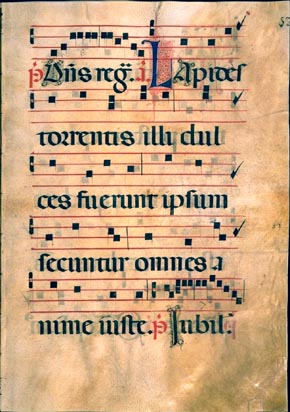 p̄ Dñs reg̃. a. Lapides
torrentis illi dul
ces fuerunt ipsum
secuntur omnes a
nime iuste. p̄ Iubil.